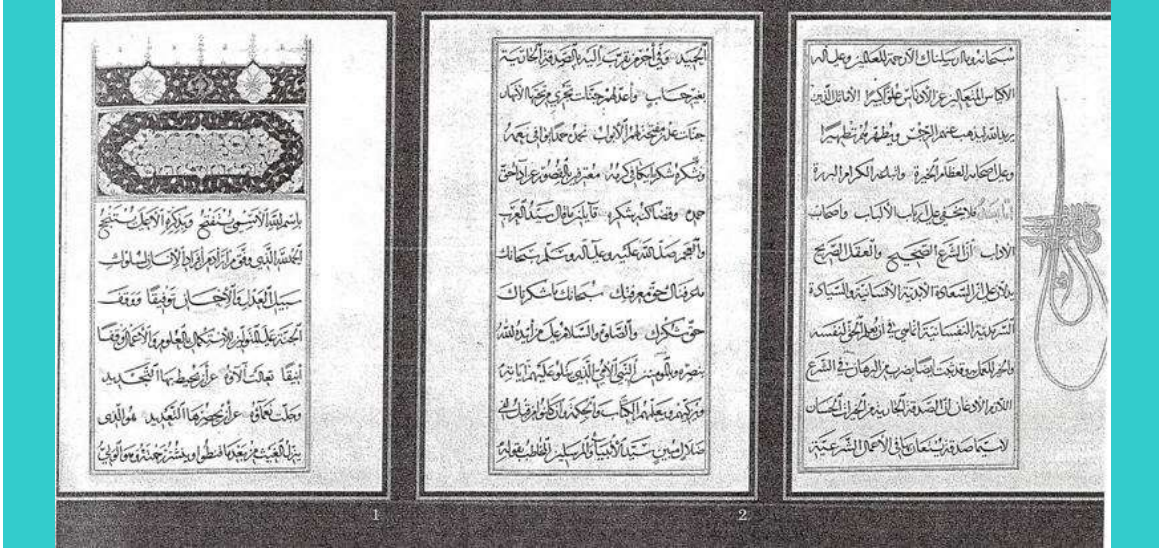 باسم الله الأسمى نستفتح وبذكره الأعلى نستنجح
الحمد لله الذي وفق من أراد من أفراد الإنسان لسلوك
سبيل العدل والأحسان توفيقا ووقف
الجنة على لاستكمال العلوم والأعمال وقفا
أنيقا تعالت آلاؤه عن أن يحيط بها التحديد
وجلت نعماؤه عن أن يحصرها التعديد هو الذي
ينزل الغيث من بعد ما قنطوا وينشر رحمته وهو الولي
1
الحميد ووفى أجر من تقرب إليه بالصدقة الجارية
بغير حساب وأعد لهم جنات تجري من تحتها الأنهار
جنات عدن مفتحة لهم الأبواب نحمده حمدا يوافي نعمه
ونشكره شكرا يكافي كرمه معترفين بالقصور عن أداء حق
حمده وقضاء كنه شكره قائلين ما قال سيد العرب
والعجم صلى الله عليه وعلى آله وسلم سبحانك
ما عرفناك حق معرفتك سبحانك ما شكرناك
حق شكرك والصلوة والسلام على من أيده الله
بنصره وبالمؤمنين النبي الأمي الذي يتلو عليهم آياته
ويزكيهم ويعلمهم الكتاب والحكمة وإن كانوا من قبل لفي
ضلال مبين سيد الأنبياء والمرسلين المخاطب بقوله
2
سبحانه وما أرسلناك إلا رحمة للعالمين وعلى آله
الأكياس المتعالين عن الأدناس علوا كبيرا الأماثل الذين
يريد الله ليذهب عنهم الرجس ويطهرهم تطهيرا
وعلى أصحابه العظام الخيرة وأتباعه الكرام البررة
فلا يخفى على أرباب الألباب وأصحاب
الآداب أن الشرع الصحيح والعقل الصريح
يدلان على أن السعادة الأبدية الإنسانية والسيادة
السرمدية النفسانية إنما هي في أن يعلم الحق لنفسه
والخير للعمل به وقد ثبت أيضا بضرب من البرهان في الشرع
اللازم الإذعان أن الصدقة الجارية من الخيرات الحسان
لا سيما صدقة يستعان بها في الأعمال الشرعية